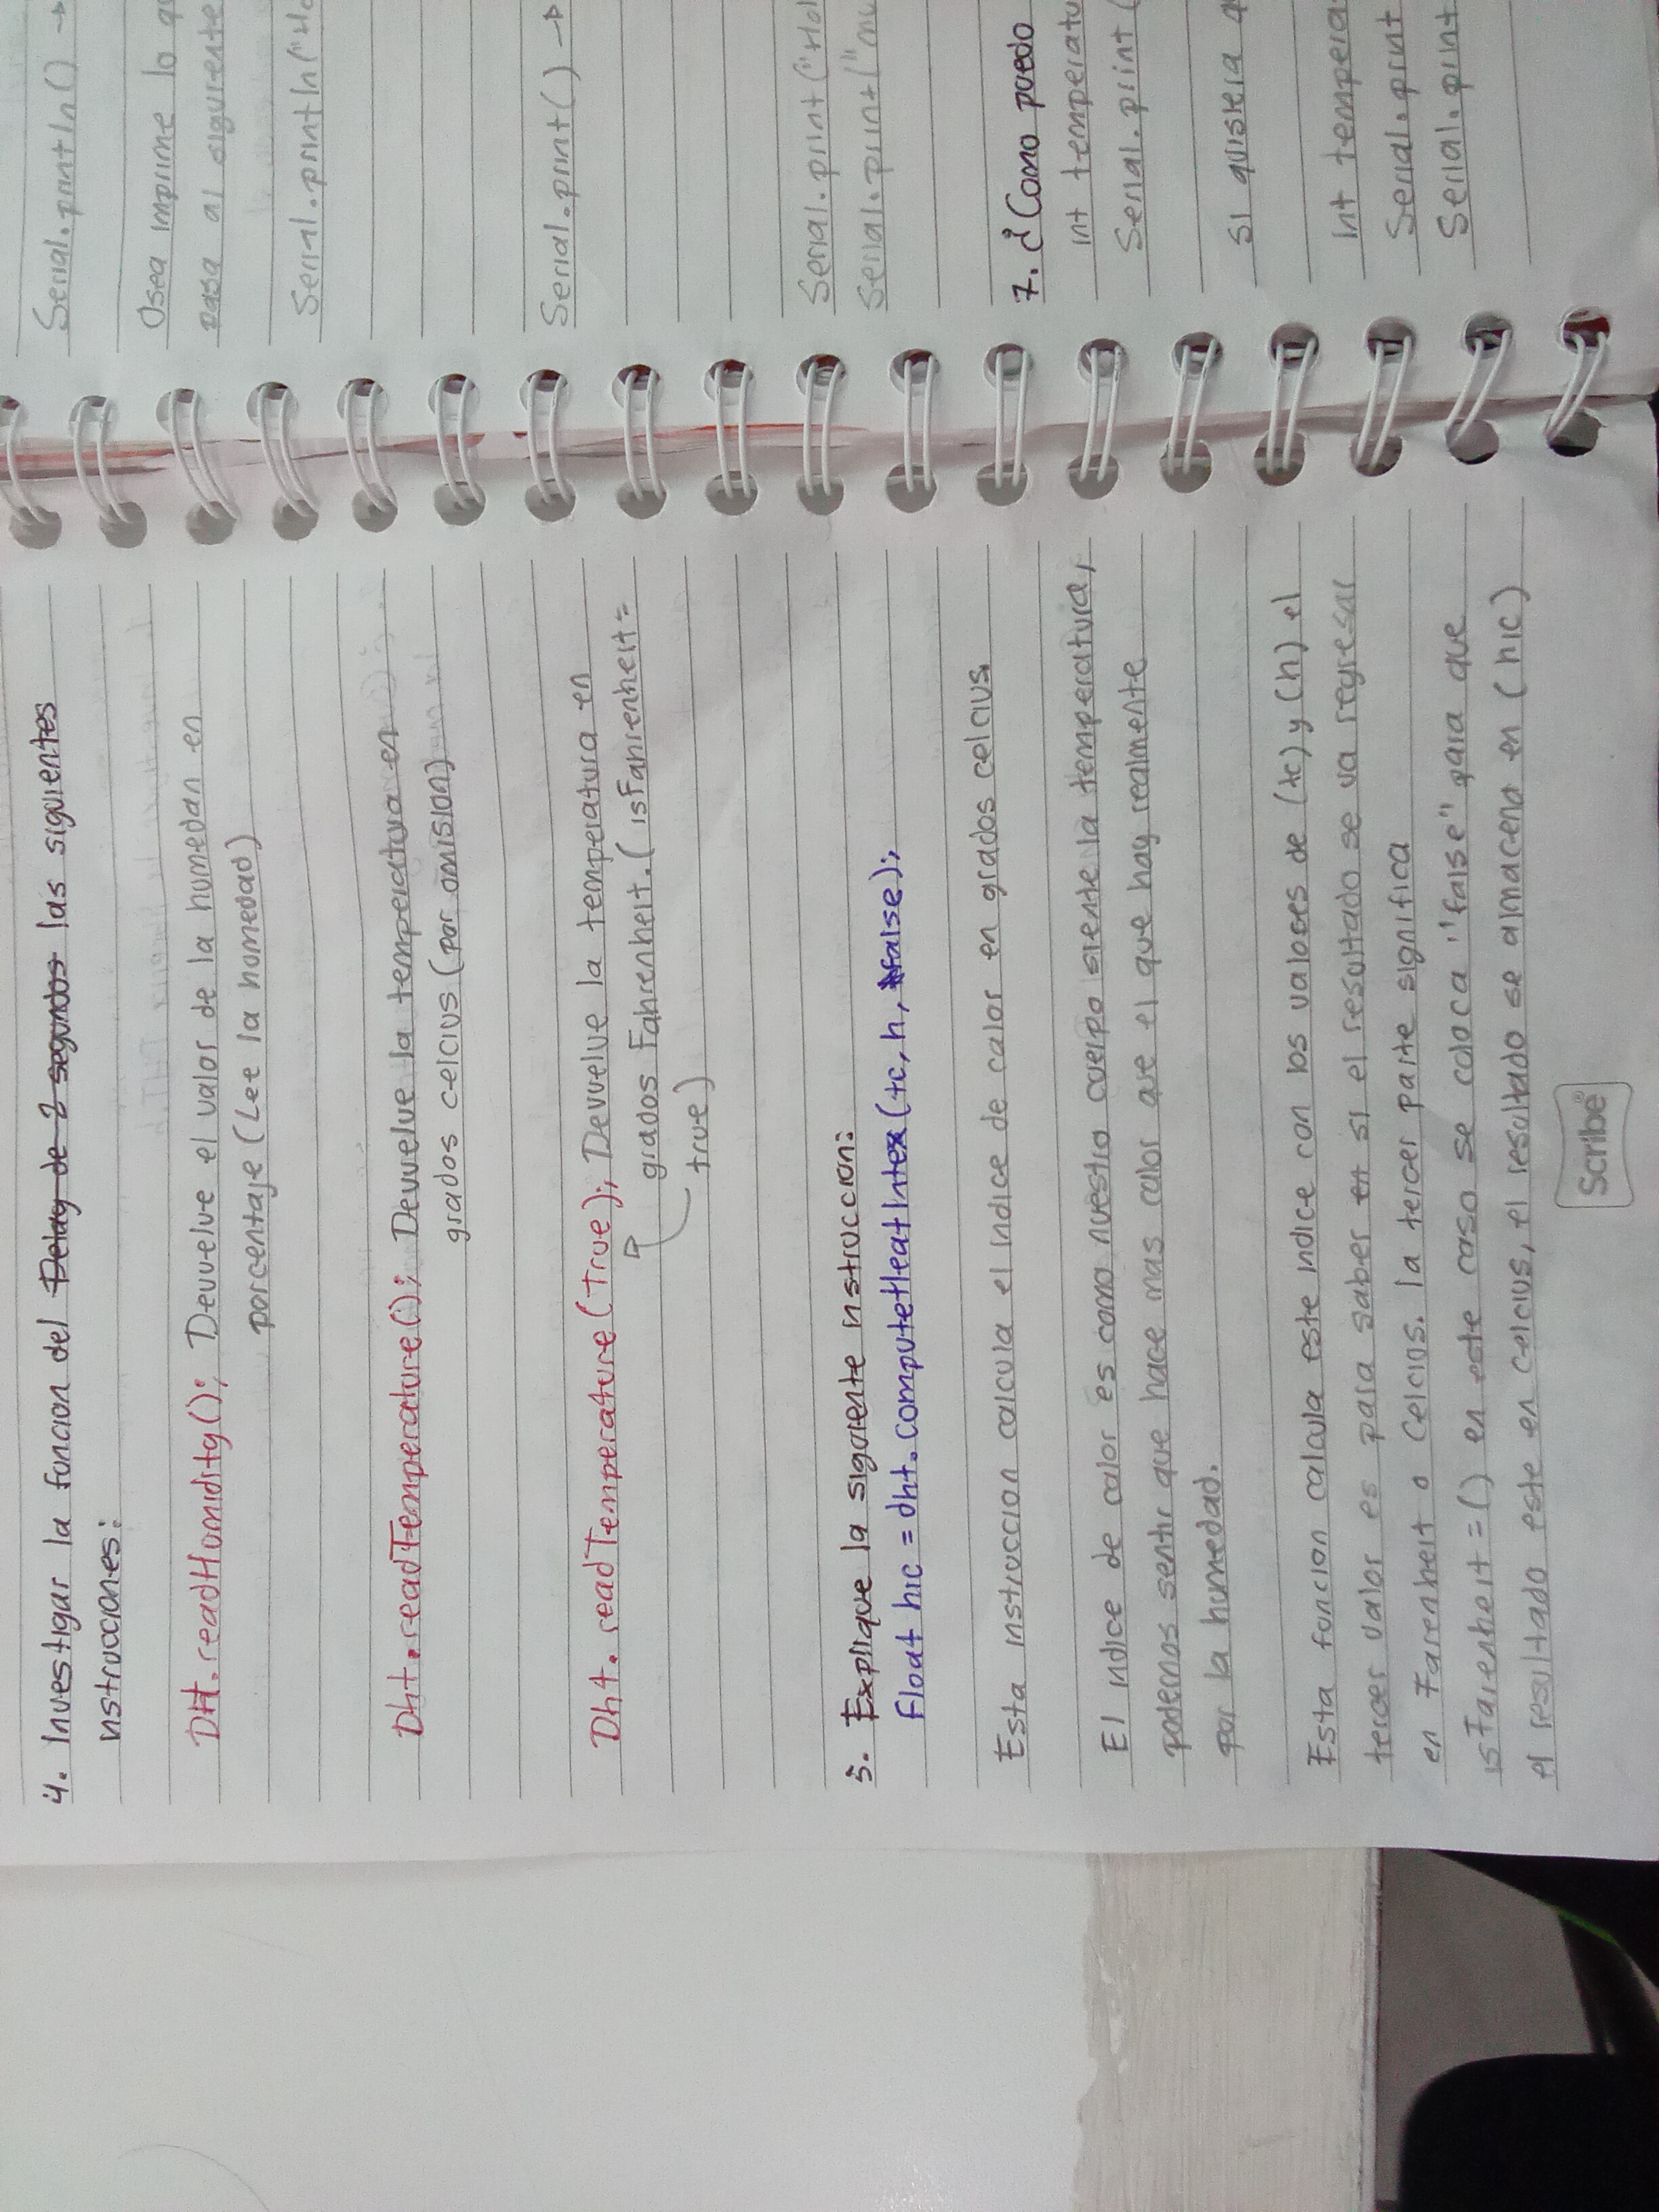 4. Investigar la funcion del Delay de 2 segundos las siguientes
nstrucciones:
DHt.readHumidity(); Devuelve el valor de la humedan en
porcentaje (Lee la humedad)
Dht.readTemperature(); Devuelve la temperatura en
grados celcius (por omision)
Dht.readTemperature(True); Devuelve la temperatura en
grados Fahrenheit. (isFahrenheit=
true)
5. Explique la siguiente instruccion:
Float hic = dht.computeHeatIntex(tc, h, false);
Esta instruccion calcula el indice de calor en grados celcius.
El indice de calor es como nuestro cuerpo siente la temperatura,
podemos sentir que hace mas calor que el que hay realmente
por la humedad.
Esta funcion calcula este indice con los valores de (tc) y (h) el
tercer valor es para saber en si el resultado se va regresar
en Farenheit o Celcios. la tercer parte significa
isFarenheit=() en este caso se coloca "false" para que
el resultado este en celcius, el resultado se almacena en (hic)
Scribe
Serial.println() →
Osea imprime lo
pasa al siguiente
Serial.println("Ho
Serial.print() →
Serial.print("Hol
Serial.print("mu
7. ¿Como puedo
int temperatu
Serial.print(
Si quisiera
int tempera
Serial.print
Serial.print